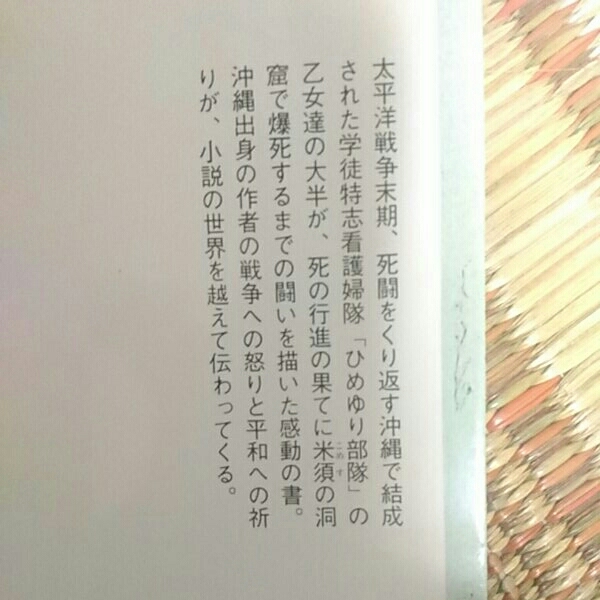 太平洋戦争末期、死闘をくり返す沖縄で結成
された学徒特志看護婦隊「ひめゆり部隊」の
乙女達の大半が、死の行進の果てに米須の洞
こめす
窟で爆死するまでの闘いを描いた感動の書。
沖縄出身の作者の戦争への怒りと平和への祈
りが、小説の世界を越えて伝わってくる。